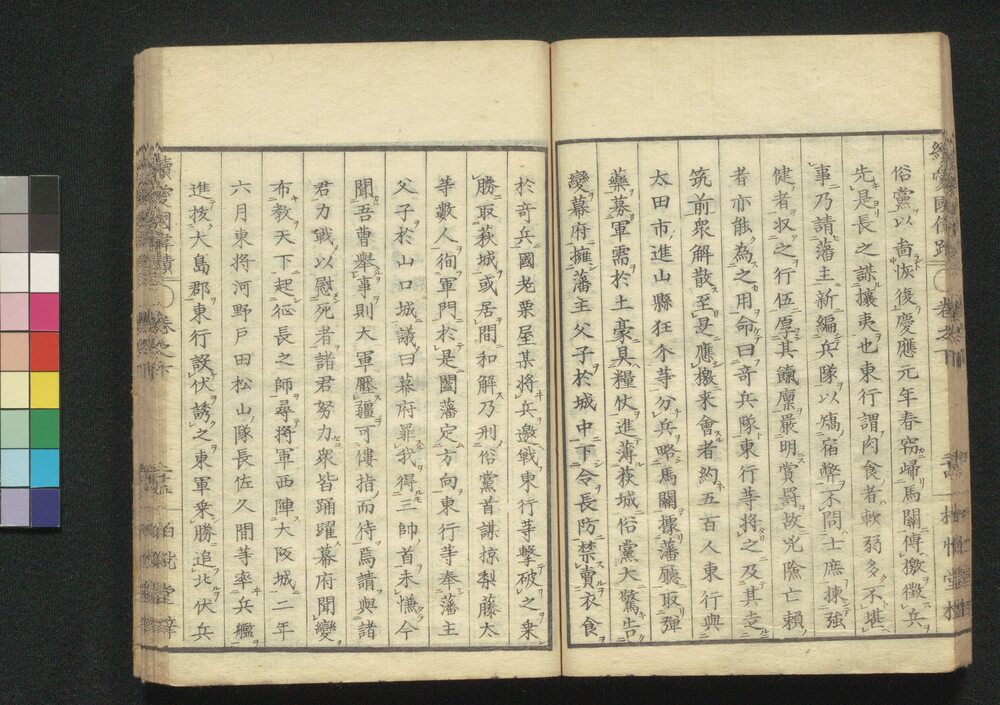 俗黨以啚恢復慶應元年春窃歸馬關傳檄徵兵
先是長之謀攘夷也東行謂肉食者軟弱多不堪
事乃請藩主新編兵隊以矯宿弊不問士庶揀強
健者収之行伍厚其餼廩嚴明賞罰故兇險亡賴
者亦能為之用命曰奇兵隊東行等將之及其走
筑前衆解散至是應檄来會者約五百人東行與
太田市進山縣狂介等分兵略馬關據藩廳取彈
藥募軍需於土豪具糧仗進薄萩城俗黨大驚告
變幕府擁藩主父子於城中下令長防禁賣衣食
於奇兵國老粟屋某將兵邀戰東行等擊破之衆
勝取萩城或居間和解乃刑俗黨首謀掠梨藤太
等數人徇軍門於是闔藩定方向東行等奉藩主
父子於山口城議曰幕府罪我得三帥首未慊今
聞吾曹舉事則大軍壓疆可僂指而待焉請與諸
君力戰以慰死者諸君努力衆皆踊躍幕府聞變
布教天下起征長之師尋將軍西陣大阪城二年
六月東將河野戶田松山隊長佐久間等率兵艦
進拔大島郡東行設伏誘之東軍乘勝追北伏兵